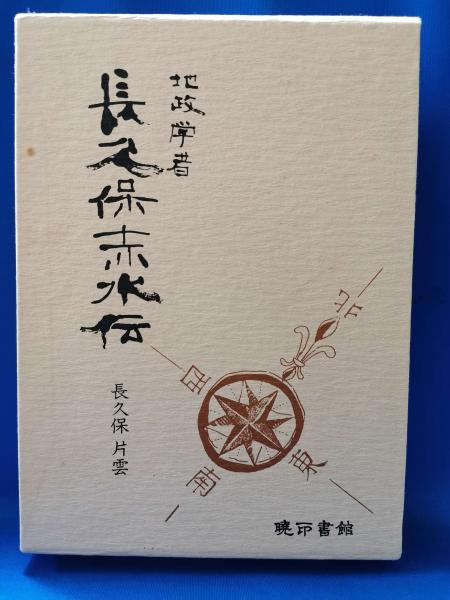 地政学者
長久保赤水伝
長久保片雲
北
西
東
南
暁印書館